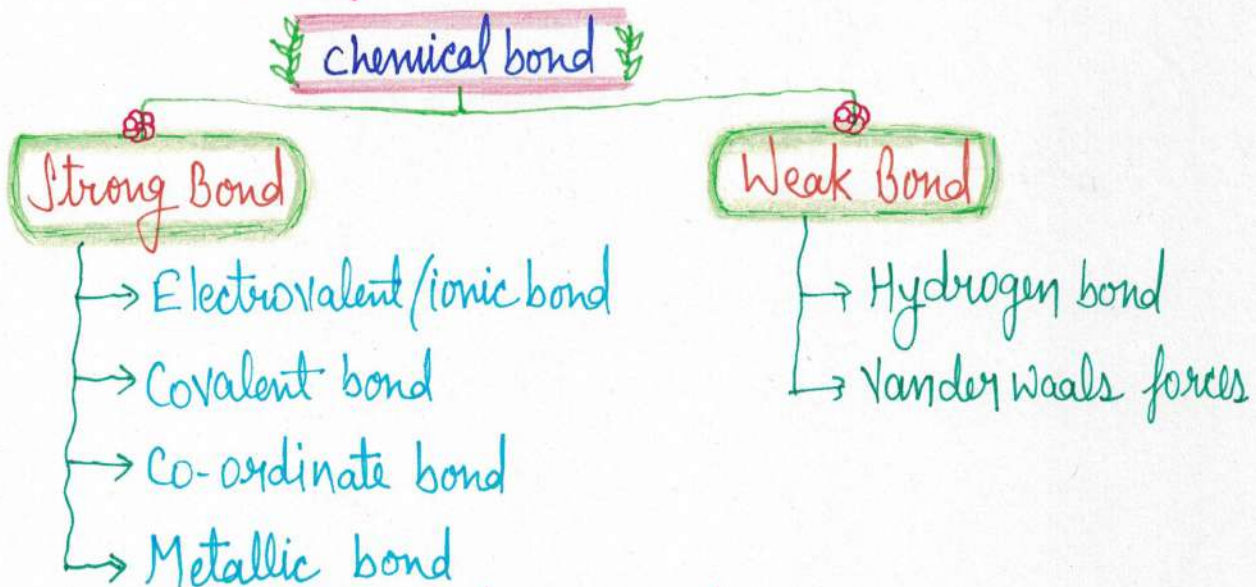 chemical bond
Strong Bond
Weak Bond
Electrovalent/ionic bond
Covalent bond
Co-ordinate bond
Metallic bond
Hydrogen bond
Vander waals forces